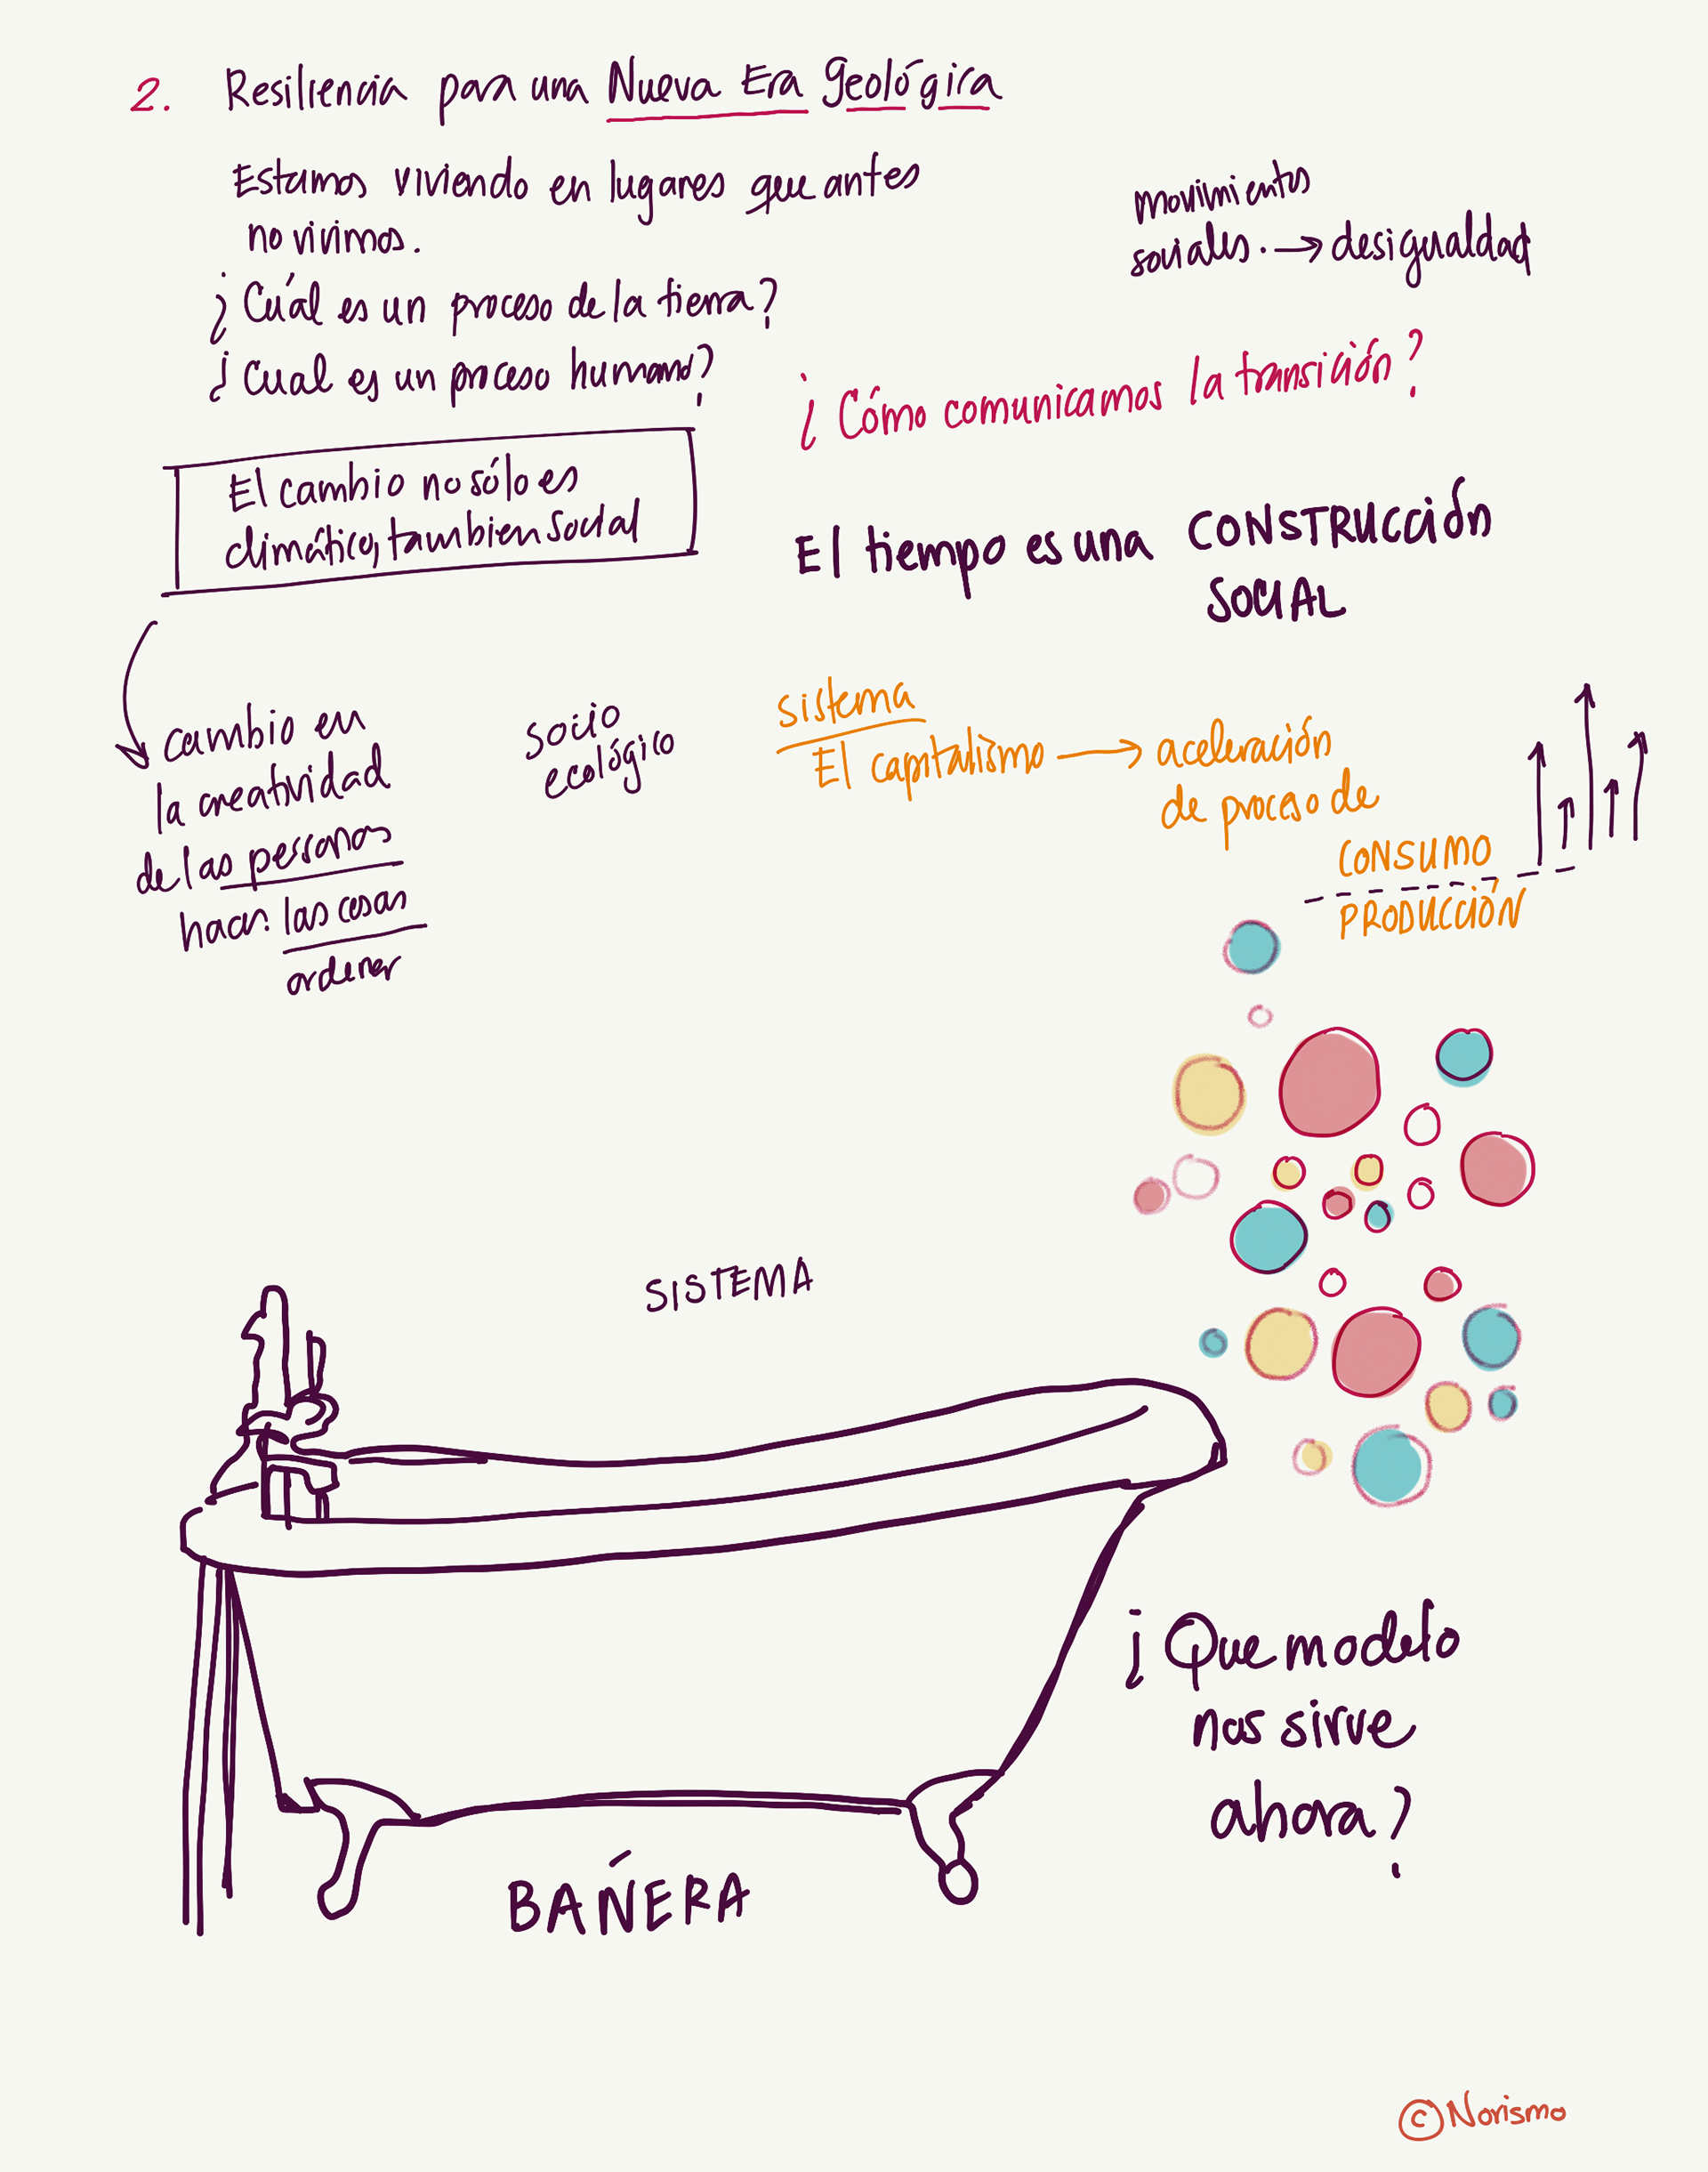 2. Resiliencia para una Nueva Era Geológica
Estamos viviendo en lugares que antes
no vivimos.
¿Cuál es un proceso de la tierra?
¿Cual es un proceso humano?
El cambio no sólo es
climático, tambien social
cambio en
la creatividad
de las personas
hacer: las cosas
ordenar
socio
ecológico
movimientos
sociales. → desigualdad
¿Cómo comunicamos la transición?
El tiempo es una CONSTRUCCIÓN
SOCIAL
sistema
El capitalismo → aceleración
de proceso de
CONSUMO
PRODUCCIÓN
SISTEMA
BAÑERA
¿Que modelo
nos sirve
ahora?
© Norismo